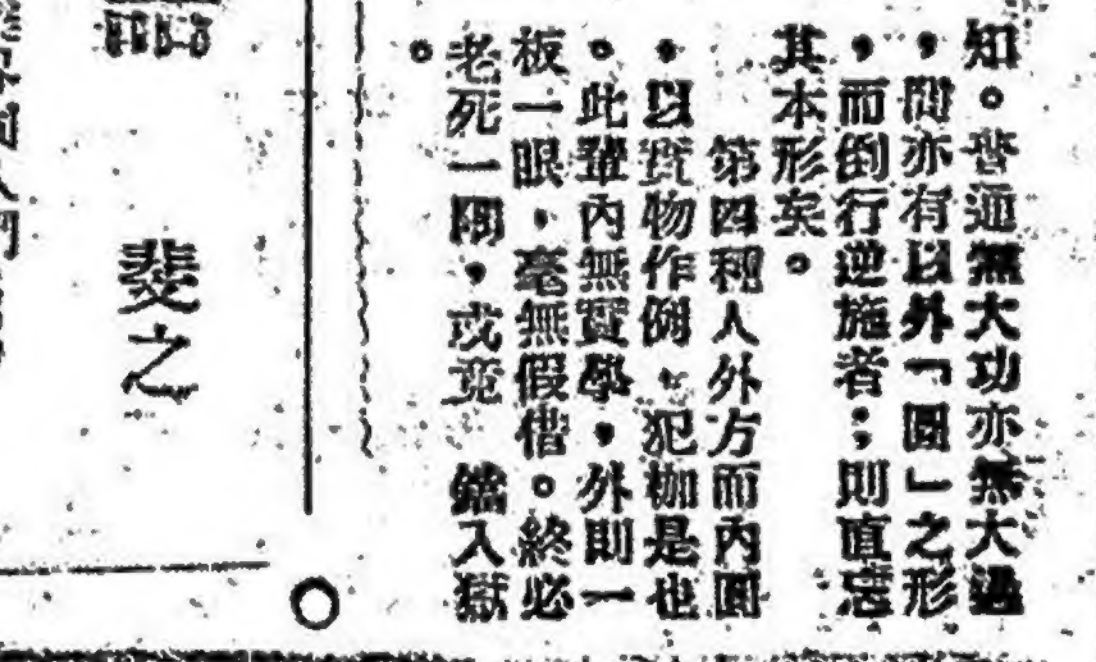 知。普通無大功亦無大過
，間亦有以外「圓」之形
，而倒行逆施者；則直忘
其本形矣。
第四種人外方而內圓
，以實物作例，犯枷是也
。此輩內無實學，外則一
板一眼，毫無假借。終必
老死一關，或竟 鐺入獄
。
斐之